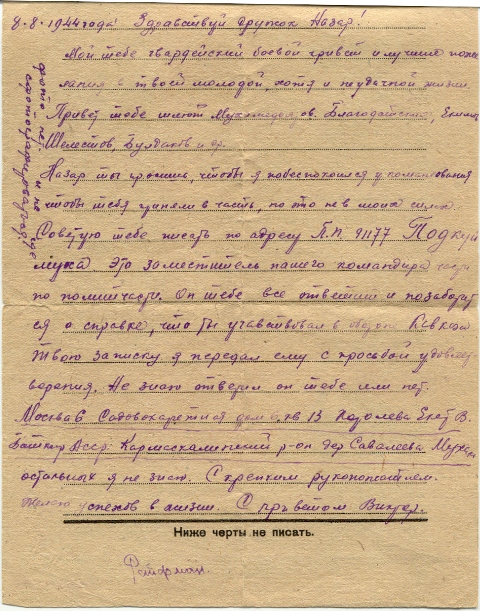 8.8.1944 года! Здравствуй дружок Назар!
Мой тебе гвардейский боевой привет и лучшие поже
лания в твоей молодой хотя и неудачной жизни.
Привет тебе шлют Благодатский,
Шелестов, Булдаков и др.
Назар ты просишь, чтобы я побеспокоился у командования
чтобы тебя приняли в часть, но это не в моих силах.
Советую тебе писать по адресу П.П. 91177 Подкуй
муха. Это заместитель нашего командира части
по политчасти. Он тебе все ответит и позаботит
ся о справке, что ты учавствовал в обороне Кавказа
Твою записку я передал ему с просьбой удовлет
ворения. Не знаю ответил он тебе или нет.
Москва 6 Садовокаретная дом кв 13 Королева Екат. В.
Башкир Асср. Кармаскалинский р-он дер Савалеева
остальных я не знаю. С крепким рукопожатием.
Желаю успехов в жизни. С приветом Виктор.
Ниже черты не писать.
фото нет и не